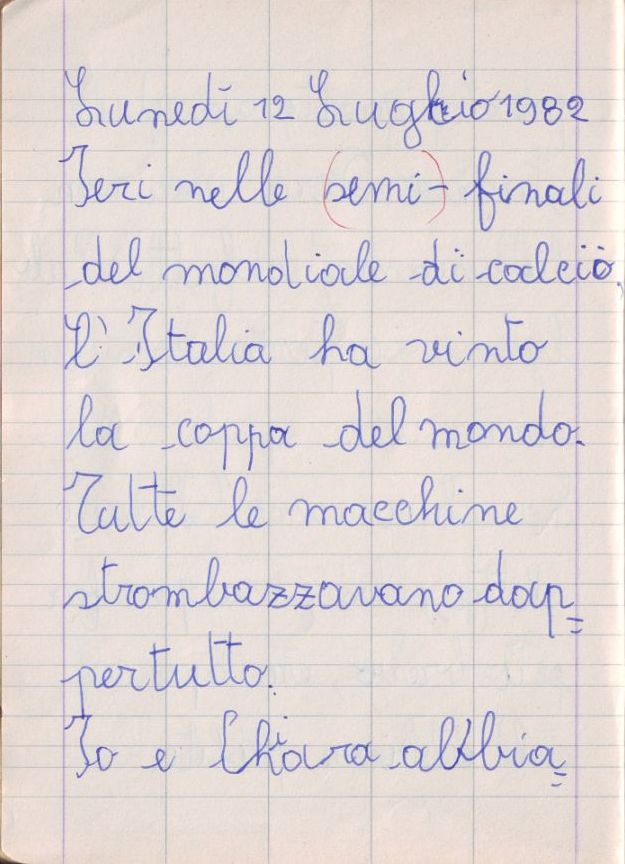 Lunedí 12 Luglio 1982
Ieri nelle (semi-) finali
del mondiale di calcio,
L'Italia ha vinto
la coppa del mondo.
Tutte le macchine
strombazzavano dap=
pertutto.
Io e Chiara abbia=